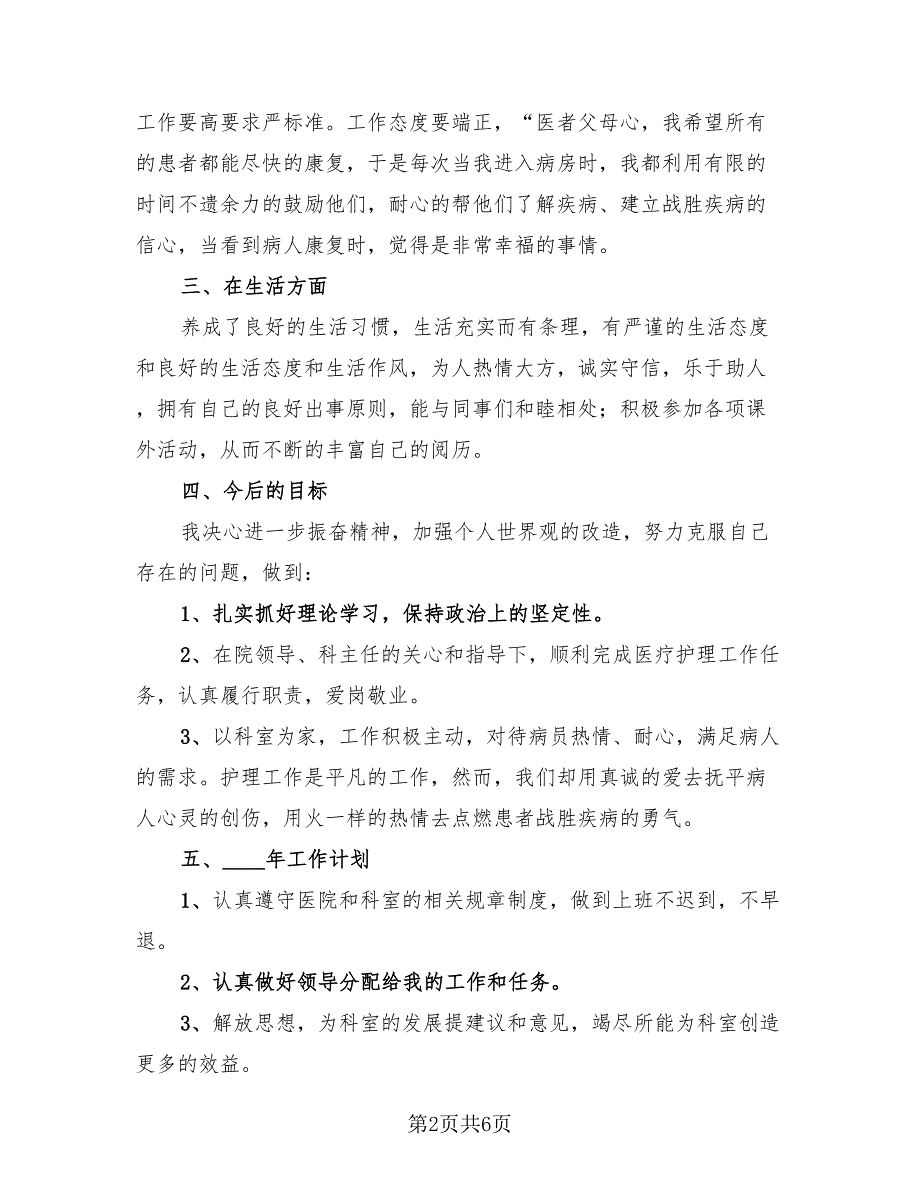 工作要高要求严标准。工作态度要端正，“医者父母心，我希望所有
的患者都能尽快的康复，于是每次当我进入病房时，我都利用有限的
时间不遗余力的鼓励他们，耐心的帮他们了解疾病、建立战胜疾病的
信心，当看到病人康复时，觉得是非常幸福的事情。
三、在生活方面
养成了良好的生活习惯，生活充实而有条理，有严谨的生活态度
和良好的生活态度和生活作风，为人热情大方，诚实守信，乐于助人
，拥有自己的良好出事原则，能与同事们和睦相处；积极参加各项课
外活动，从而不断的丰富自己的阅历。
四、今后的目标
我决心进一步振奋精神，加强个人世界观的改造，努力克服自己
存在的问题，做到：
1、扎实抓好理论学习，保持政治上的坚定性。
2、在院领导、科主任的关心和指导下，顺利完成医疗护理工作任
务，认真履行职责，爱岗敬业。
3、以科室为家，工作积极主动，对待病员热情、耐心，满足病人
的需求。护理工作是平凡的工作，然而，我们却用真诚的爱去抚平病
人心灵的创伤，用火一样的热情去点燃患者战胜疾病的勇气。
五、____年工作计划
1、认真遵守医院和科室的相关规章制度，做到上班不迟到，不早
退。
2、认真做好领导分配给我的工作和任务。
3、解放思想，为科室的发展提建议和意见，竭尽所能为科室创造
更多的效益。
第2页共6页